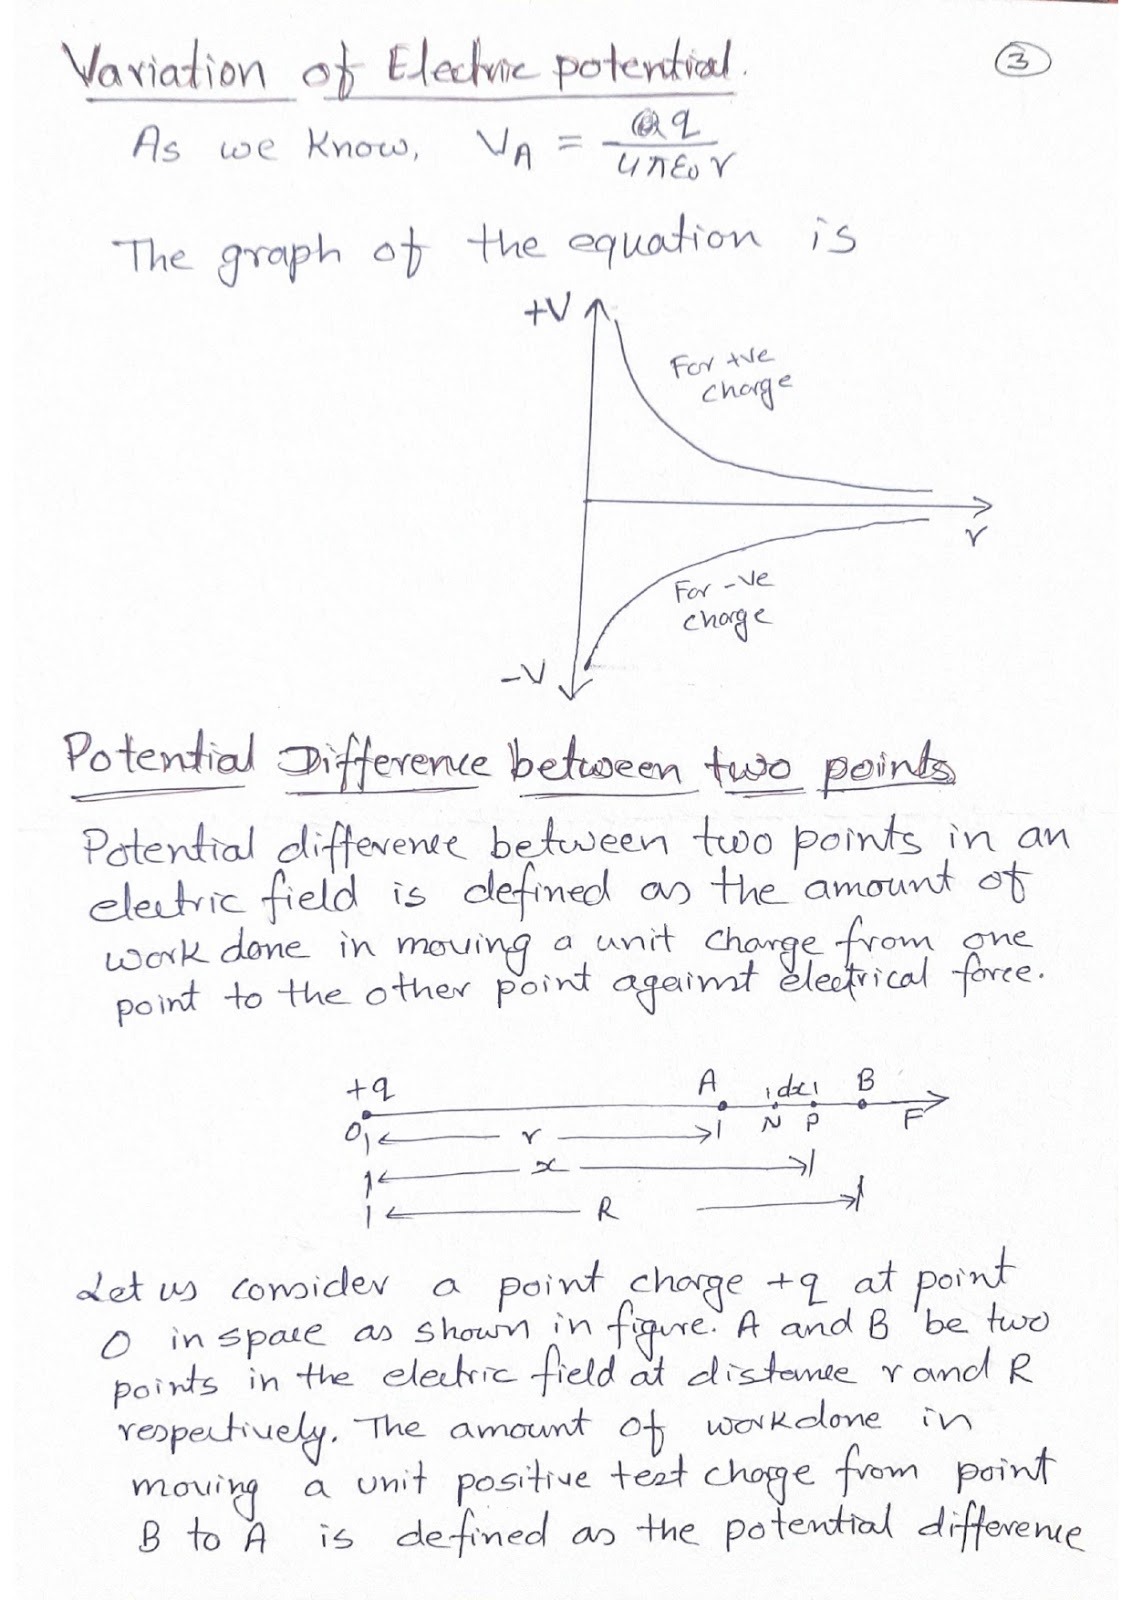 Variation of Electric potential.
3
As we know, V_A = q / 4πε₀r
The graph of the equation is
+V
For +ve
charge
r
For -ve
charge
-V
Potential Difference between two points
Potential difference between two points in an
electric field is defined as the amount of
work done in moving a unit charge from one
point to the other point against electrical force.
+q A dx B
O r N P F
x
R
Let us consider a point charge +q at point
O in space as shown in figure. A and B be two
points in the electric field at distance r and R
respectively. The amount of workdone in
moving a unit positive test charge from point
B to A is defined as the potential difference